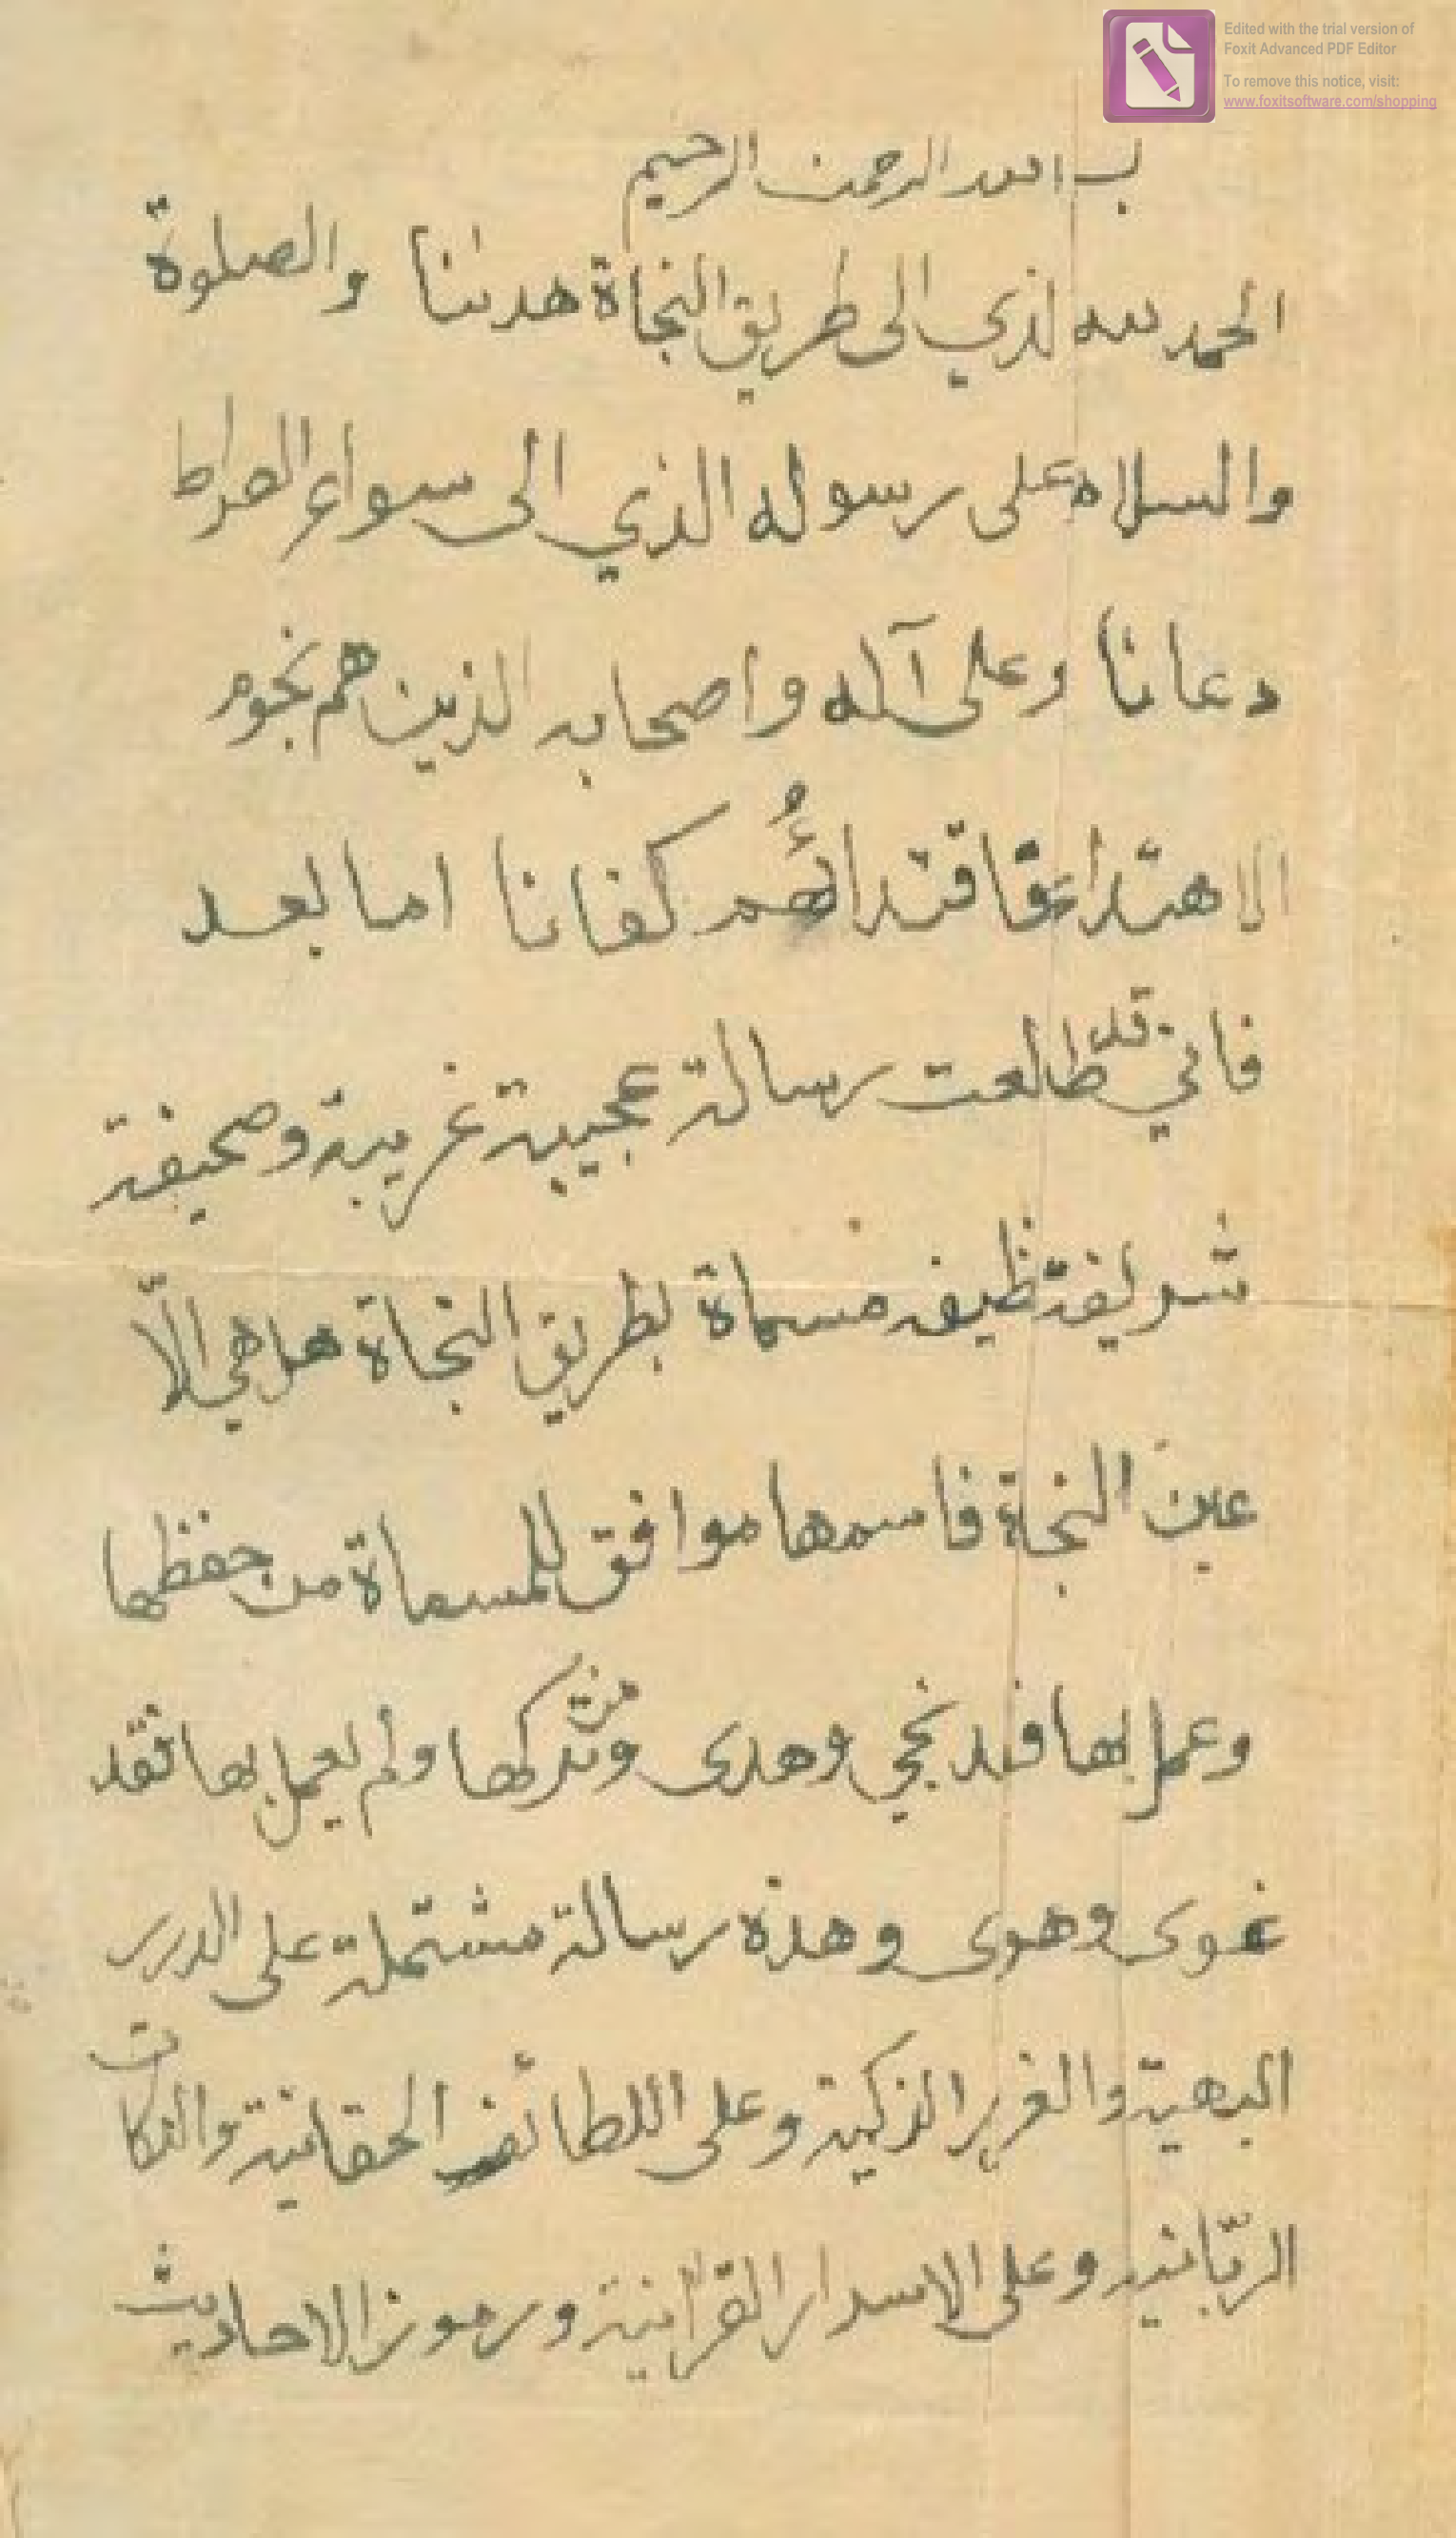 Edited with the trial version of
Foxit Advanced PDF Editor
To remove this notice, visit:
www.foxitsoftware.com/shopping
بسم الله الرحمن الرحيم
الحمد لله لذي الى طريق النجاة هدٰىنا والصلوة
والسلام على رسوله الذي الى سواء الصراط
دعانا وعلى آله واصحابه الذين هم نجوم
الاهتداء فاقتدائُهم كفانا اما بعد
فاني قد طالعت رسالة عجيبة غريبة وصحيفة
شريفة نظيفه مسماة بطريق النجاة ما هي الّا
عين النجاة فاسمها موافق للمسماة من حفظها
وعمل بها فقد نجي وهدى ومن تركها ولم يعمل بها فقد
غوى وهوى وهذه رسالة مشتملة على الدرر
البهية والغرر الذكية وعلى اللطائف الحقانية والنكات
الربّانيه وعلى الاسرار القرآنية ورموز الاحاديث